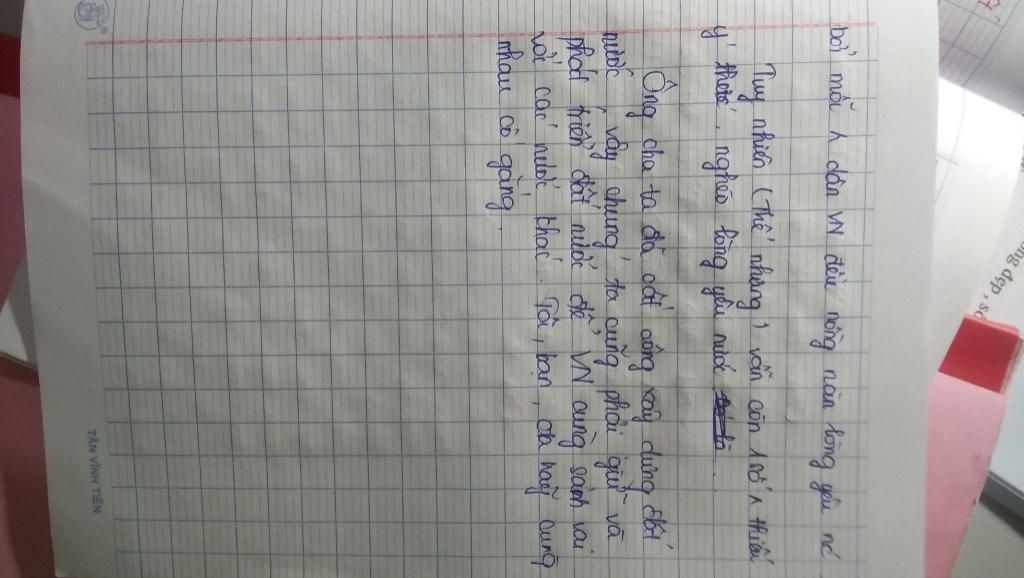 bởi mỗi ^ dân VN đều nồng nàn lòng yêu nc
Tuy nhiên (Thế nhưng), vẫn còn 1 số ^ thiếu
ý thức, nghèo lòng yêu nước
Ông cha ta đã có công xây dựng đất
nước vậy chúng ta cũng phải giữ và
phát triển đất nước để VN cùng sánh vai
với các nước khác. Tôi, bạn, ta hãy cùng
nhau cố gắng.
TÂN VĨNH TIẾN
, đáp